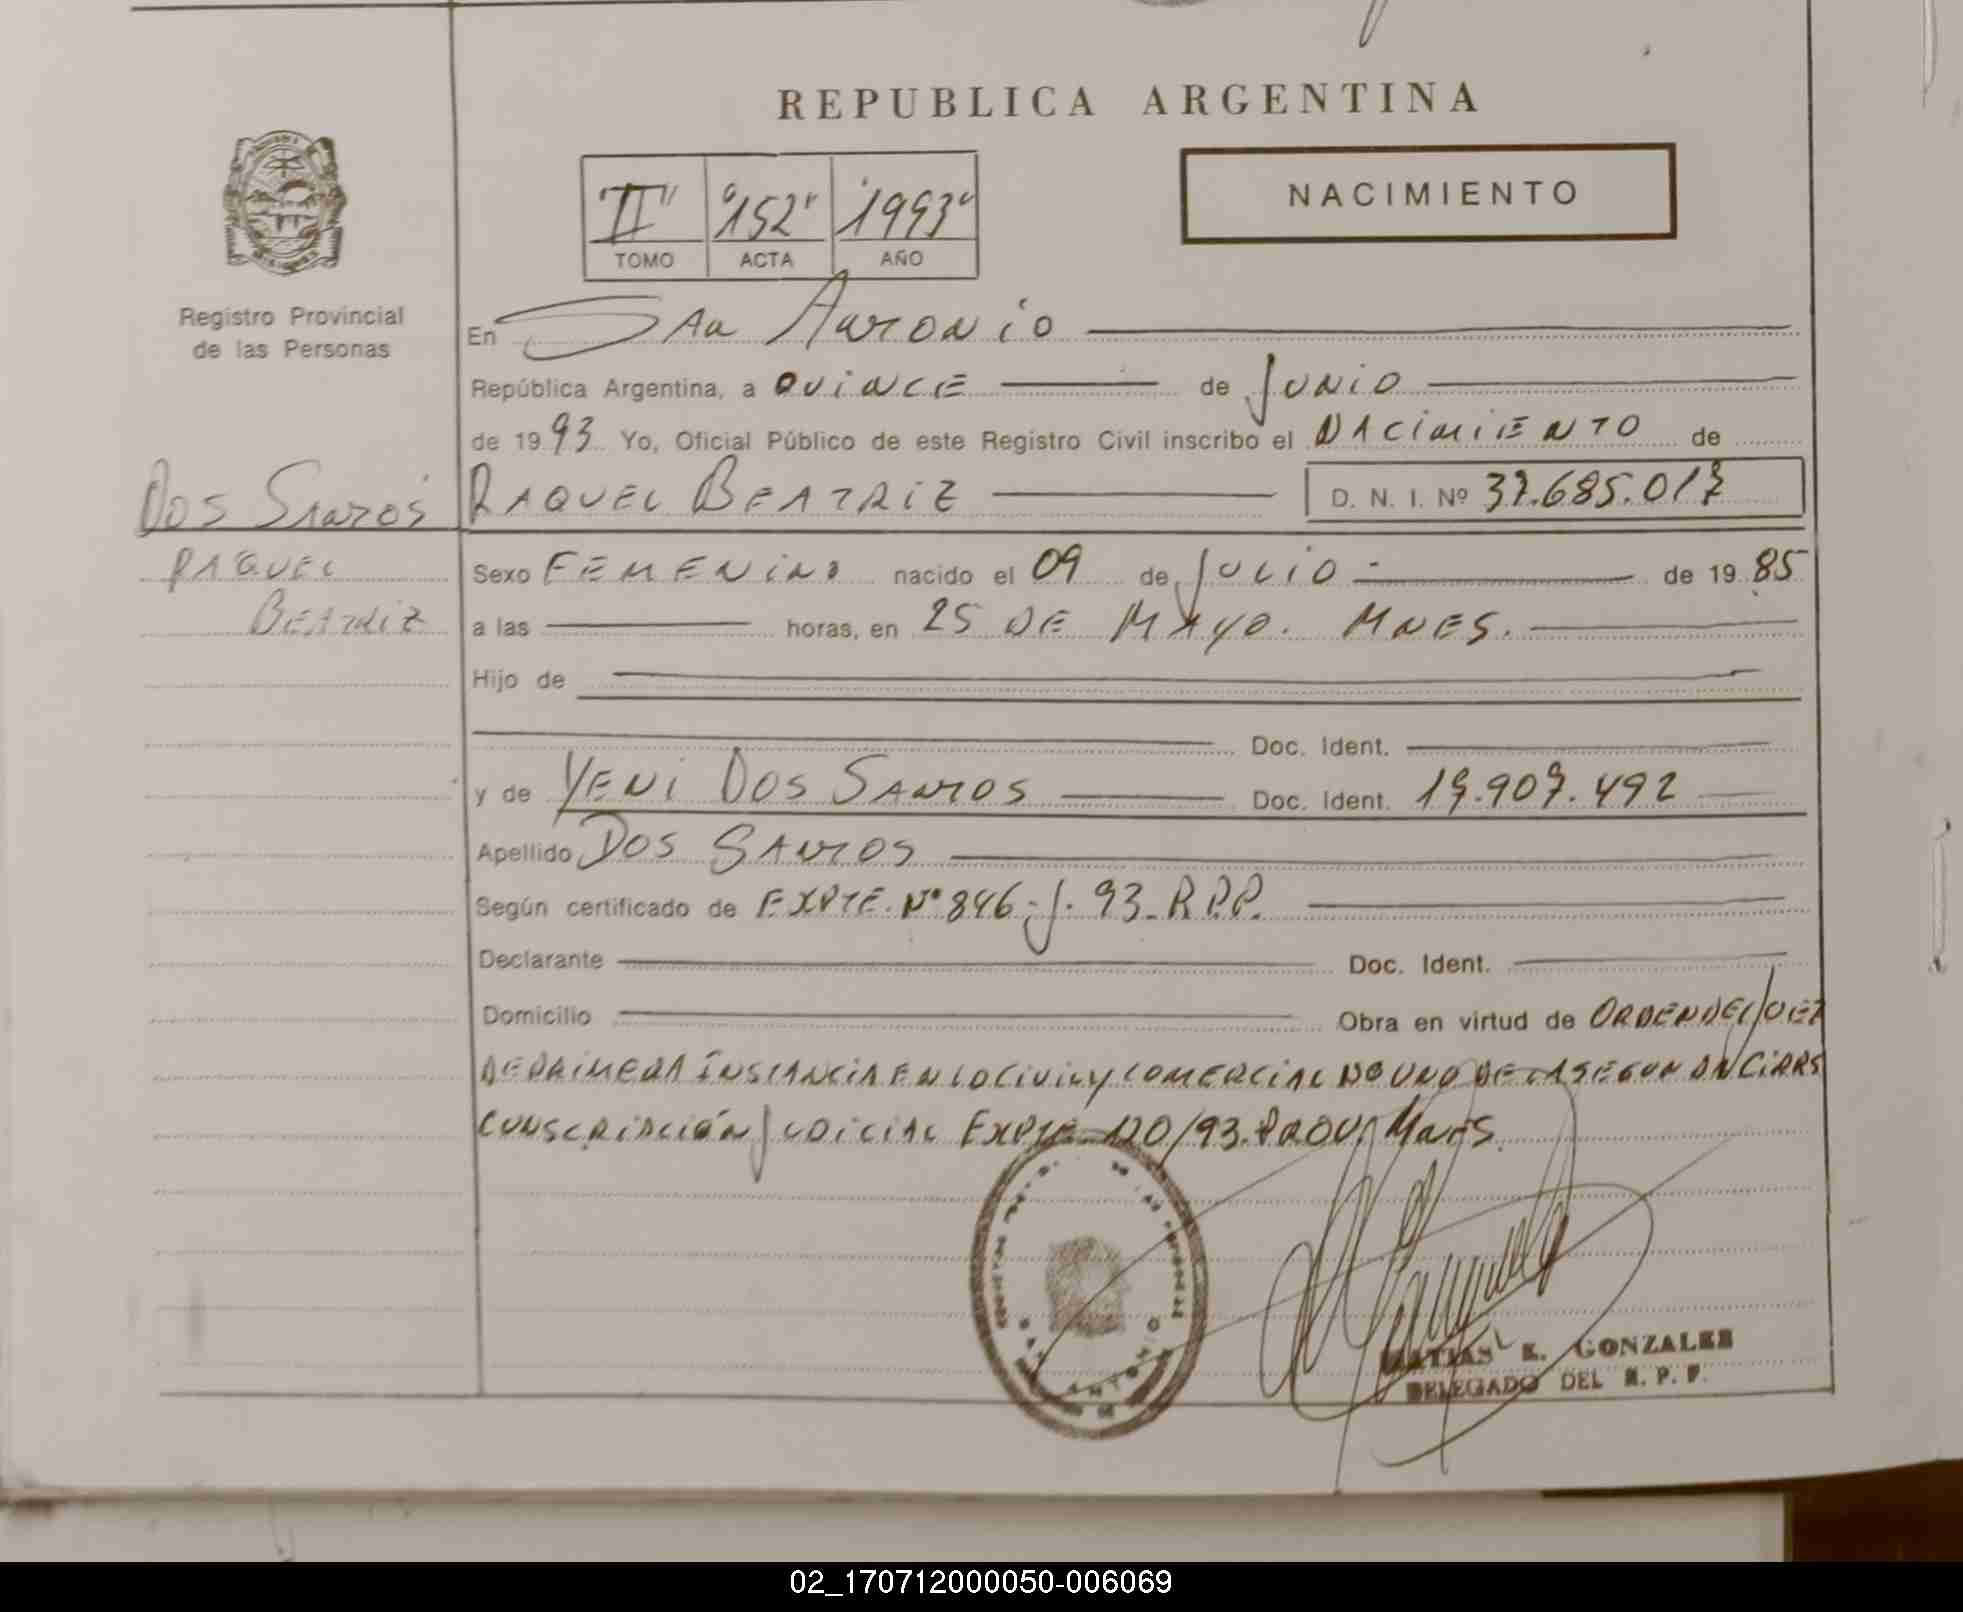 REPUBLICA ARGENTINA
NACIMIENTO
"II" "152" "1993"
TOMO ACTA AÑO
Registro Provincial
de las Personas
En SAN ANTONIO
República Argentina, a QUINCE de JUNIO
de 1993 Yo, Oficial Público de este Registro Civil inscribo el NACIMIENTO de
DOS SANTOS
RAQUEL
BEATRIZ
RAQUEL BEATRIZ D. N. I. Nº 37.685.017
Sexo FEMENINO nacido el 09 de JULIO de 1985
a las horas, en 25 DE MAYO. MNES.
Hijo de
Doc. Ident.
y de YENI DOS SANTOS Doc. Ident. 19.907.492
Apellido DOS SANTOS
Según certificado de EXPTE. Nº 846-J. 93-R.P.P.
Declarante Doc. Ident.
Domicilio Obra en virtud de ORDEN DEL JUEZ
DE PRIMERA INSTANCIA EN LO CIVIL Y COMERCIAL NO UNO DE LA SEGUNDA CIRRS
CUNSCRIPCIÓN JUDICIAL EXPTE. 120/93. PROV. MNES.
SAN ANTONIO
MATIAS E. GONZALEZ
DELEGADO DEL R. P. P.
02_170712000050-006069